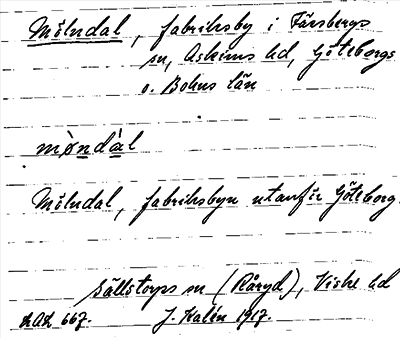 Mölndal, fabriksby i Fässbergs
sn, Askims hd, Göteborgs
o. Bohus län
mǫ̀ndàl
Mölndal, fabriksbyn utanför Göteborg.
Sällstorps sn (Råryd), Viske hd
LAL 667. J. Kalén 1917.